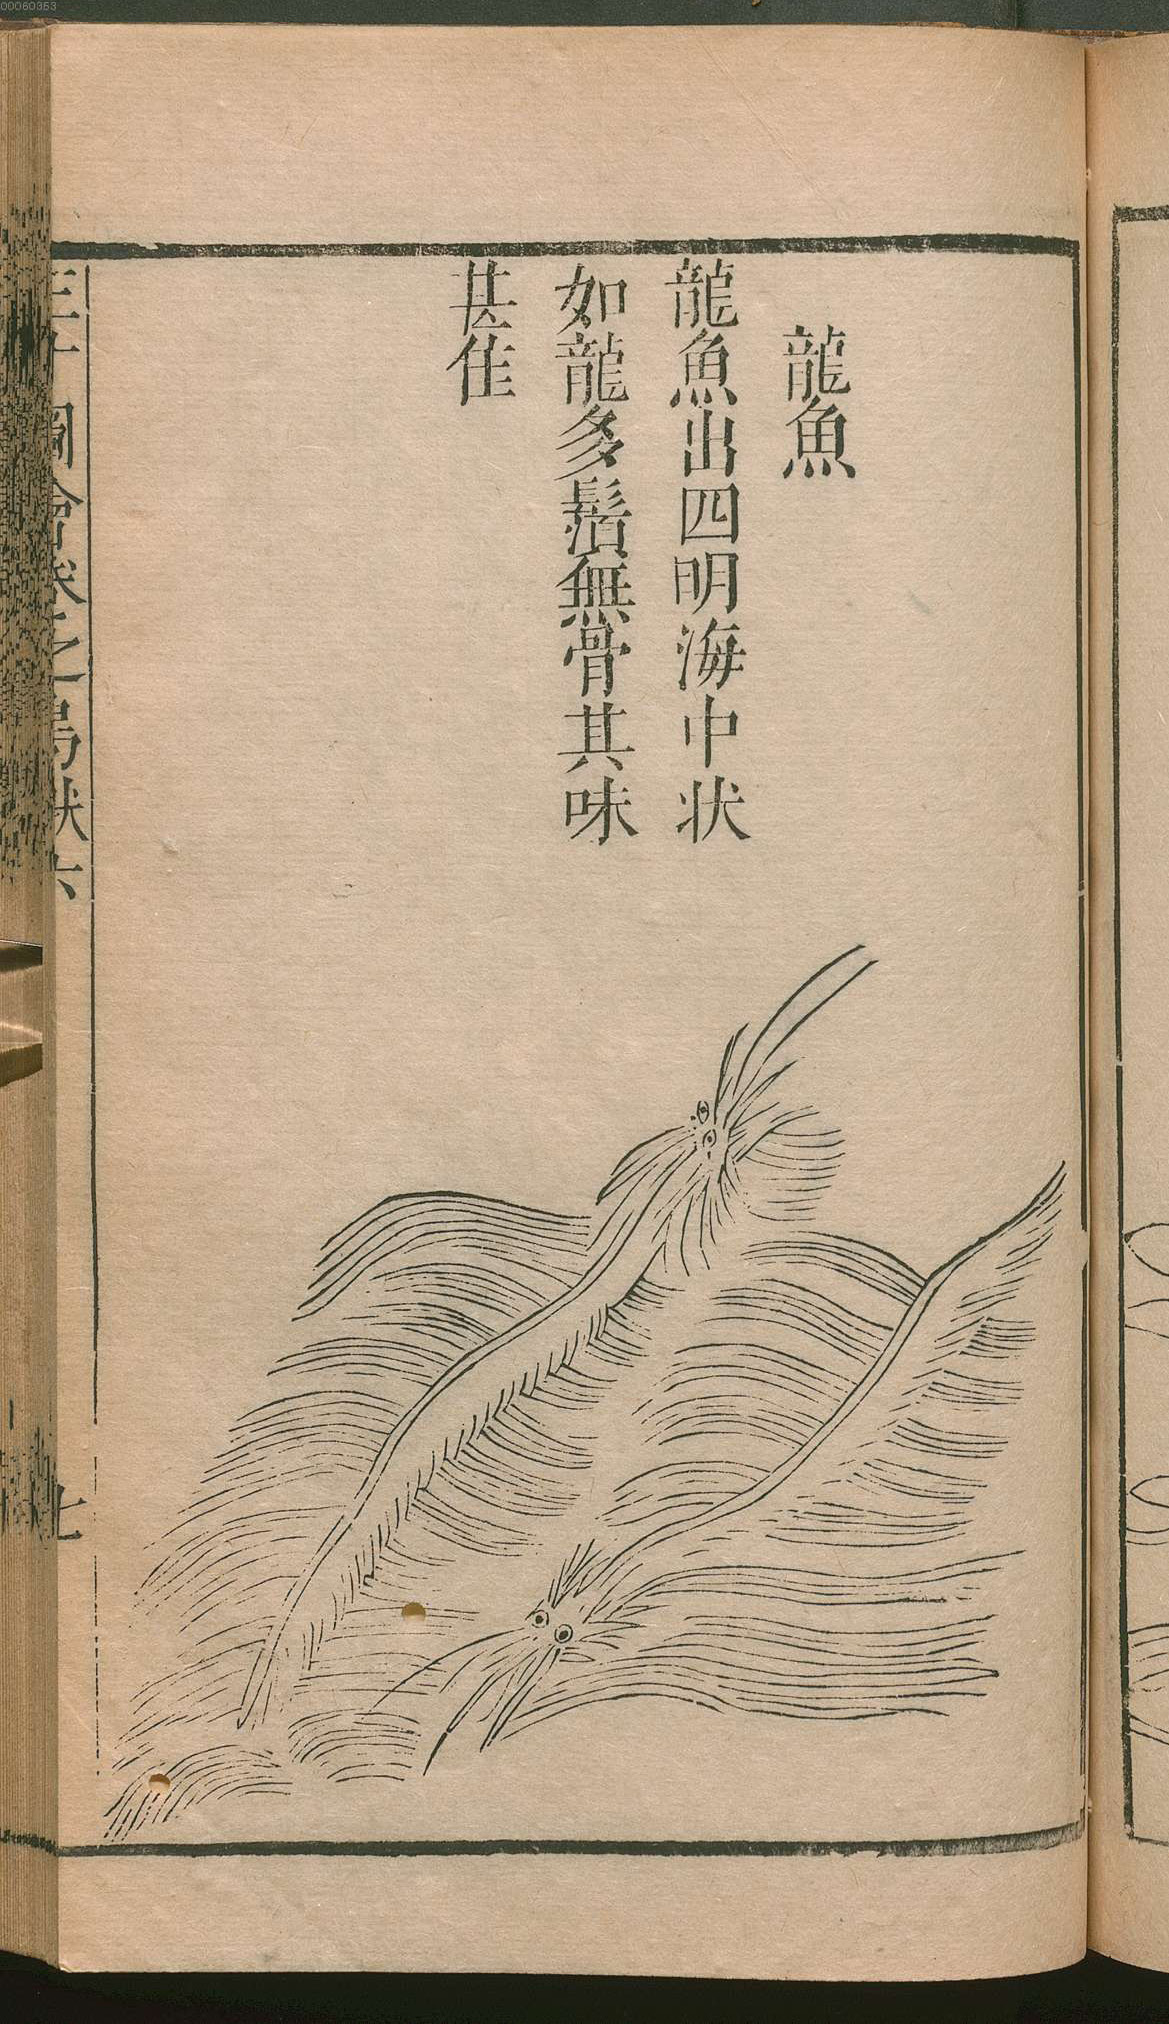 龍魚
龍魚出四明海中状
如龍多鬚無骨其味
甚佳
三才圖會卷之鳥獸六
七
00060353